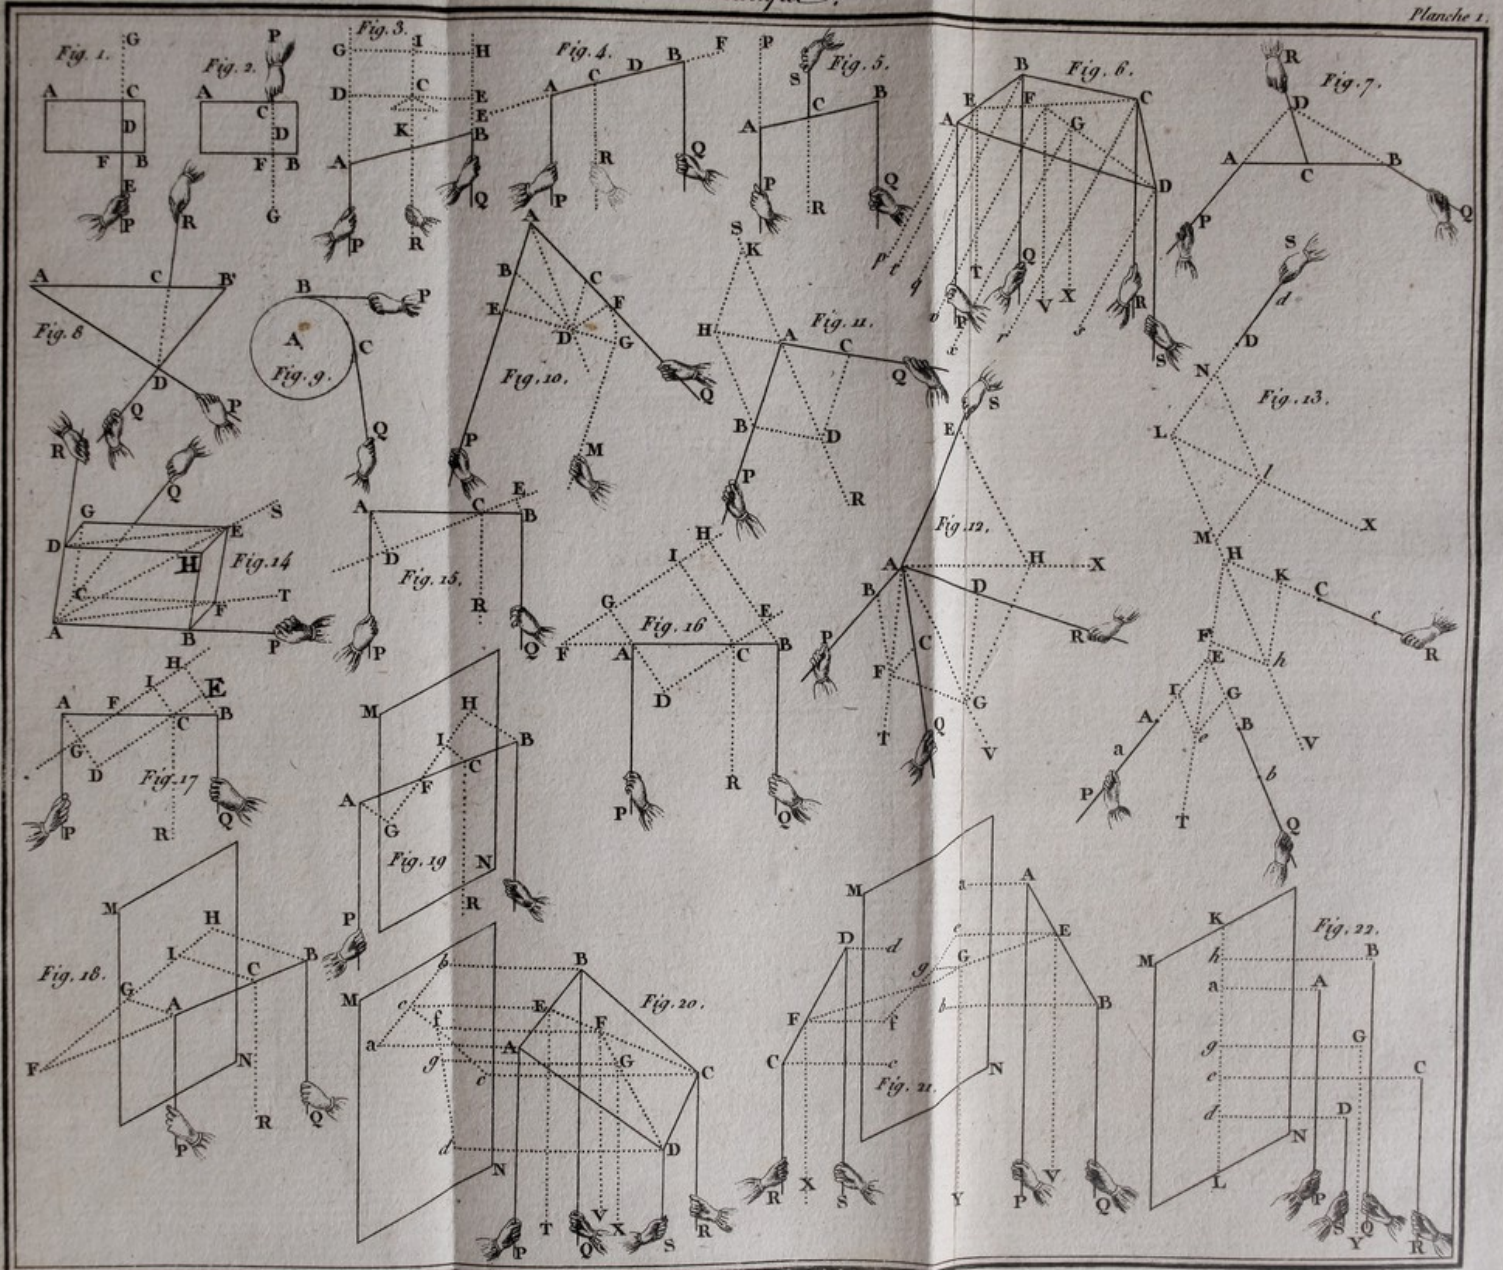 Planche 1.
Fig. 1.
G
A
C
D
F
B
E
P
Fig. 2.
P
A
C
D
F
B
G
Fig. 3.
G
I
H
D
C
E
K
A
B
P
R
Q
Fig. 4.
E
A
C
D
B
F
P
R
Q
Fig. 5.
P
S
A
C
B
P
R
Q
Fig. 6.
B
E
F
C
A
G
D
p
t
q
T
Q
V
X
R
v
P
x
r
s
S
Fig. 7.
R
D
A
C
B
P
Q
Fig. 8
A
C
B
R
D
Q
P
Fig. 9.
B
P
A
C
Q
Fig. 10.
A
B
C
E
F
D
G
Q
P
M
Fig. 11.
S
K
H
A
C
Q
B
D
P
R
Fig. 12.
S
E
A
H
X
B
D
P
C
R
F
G
T
Q
V
Fig. 13.
S
d
D
N
L
l
X
M
H
K
C
c
R
F
E
h
I
G
A
B
e
V
a
b
P
T
Q
Fig. 14
R
Q
G
S
D
E
H
C
F
T
A
B
P
Fig. 15.
A
C
E
B
D
R
P
Q
Fig. 16
H
I
G
E
F
A
C
B
D
P
R
Q
Fig. 17
H
I
E
A
F
C
B
G
D
P
R
Q
Fig. 18.
M
H
I
B
G
A
C
F
N
P
R
Q
Fig. 19
M
H
I
B
C
A
F
G
N
P
R
Fig. 20.
b
B
M
e
E
f
F
a
A
g
G
c
C
d
D
N
P
T
Q
V
X
S
R
Fig. 21.
A
a
M
D
d
e
E
g
G
b
B
F
f
C
c
N
R
X
S
Y
P
V
Q
Fig. 22.
K
M
h
B
a
A
g
G
c
C
d
D
N
L
P
S
Q
Y
R